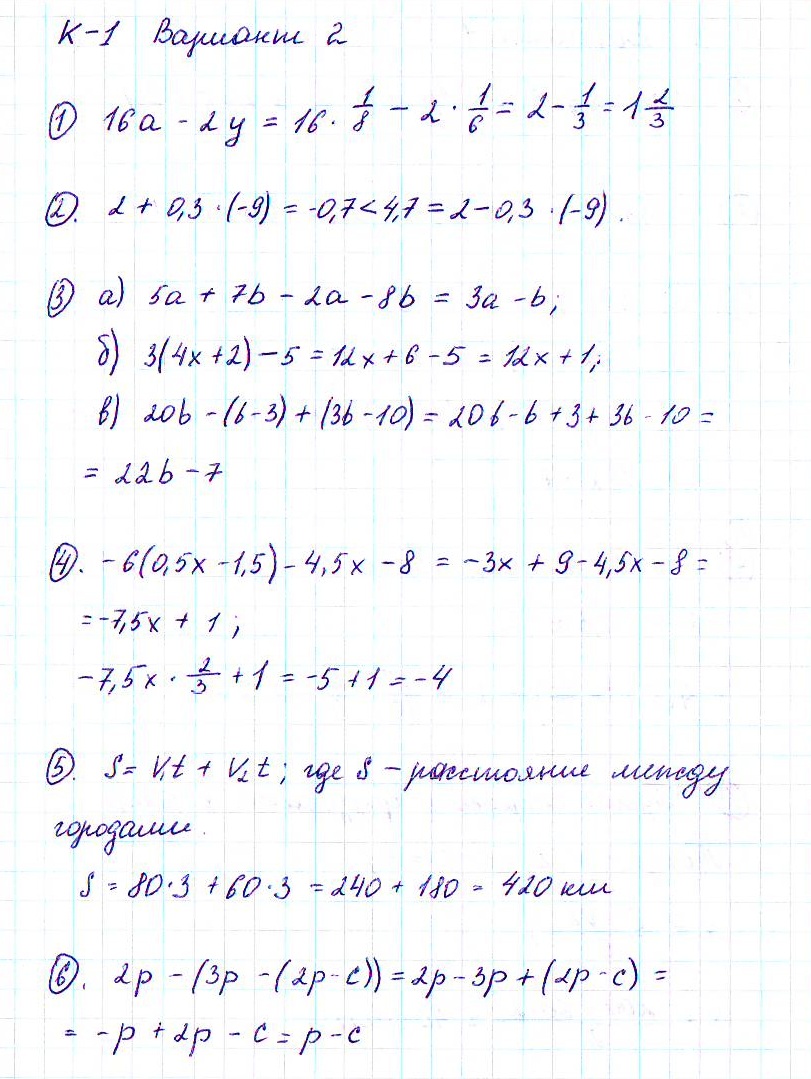 К-1 Вариант 2
① 16a - 2y = 16 · 1/8 - 2 · 1/6 = 2 - 1/3 = 1 2/3
②. 2 + 0,3 · (-9) = -0,7 < 4,7 = 2 - 0,3 · (-9).
③ а) 5a + 7b - 2a - 8b = 3a - b;
б) 3(4x + 2) - 5 = 12x + 6 - 5 = 12x + 1;
в) 20b - (b - 3) + (3b - 10) = 20b - b + 3 + 3b - 10 =
= 22b - 7
④. - 6(0,5x - 1,5) - 4,5x - 8 = -3x + 9 - 4,5x - 8 =
= -7,5x + 1;
-7,5x · 2/3 + 1 = -5 + 1 = -4
⑤. S = V₁t + V₂t; где S - расстояние между
городами.
S = 80·3 + 60·3 = 240 + 180 = 420 км
⑥. 2p - (3p - (2p - c)) = 2p - 3p + (2p - c) =
= -p + 2p - c = p - c